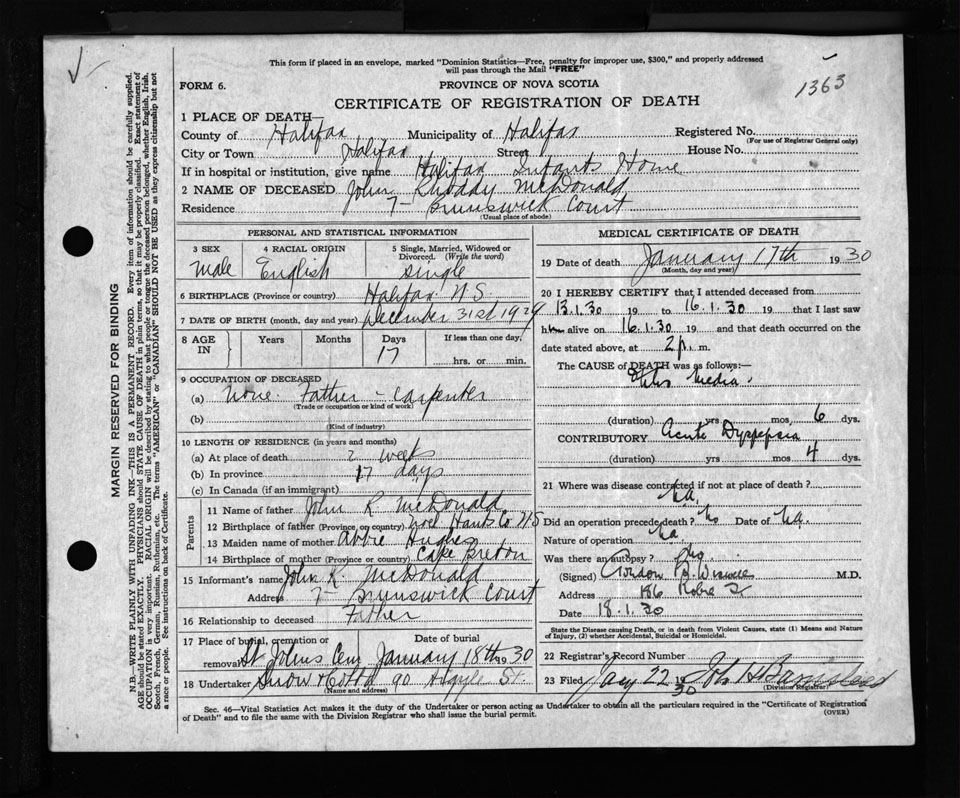 This form if placed in an envelope, marked "Dominion Statistics—Free, penalty for improper use, $300," and properly addressed
will pass through the Mail "FREE"
1363
FORM 6.
PROVINCE OF NOVA SCOTIA
CERTIFICATE OF REGISTRATION OF DEATH
1 PLACE OF DEATH—
County of Halifax Municipality of Halifax Registered No.
(For use of Registrar General only)
City or Town Halifax Street House No.
If in hospital or institution, give name Halifax Infants Home
2 NAME OF DECEASED John McDonald
Residence 7- Brunswick Court
(Usual place of abode)
PERSONAL AND STATISTICAL INFORMATION
3 SEX 4 RACIAL ORIGIN 5 Single, Married, Widowed or
Divorced. (Write the word)
Male English Single
6 BIRTHPLACE (Province or country) Halifax N.S
7 DATE OF BIRTH (month, day and year) December 31st 1929
8 AGE IN Years Months Days If less than one day,
17 hrs. or min.
9 OCCUPATION OF DECEASED
(a) None Father - Carpenter
(Trade or occupation or kind of work)
(b)
(Kind of industry)
10 LENGTH OF RESIDENCE (in years and months)
(a) At place of death 2 weeks
(b) In province 17 days
(c) In Canada (if an immigrant)
Parents
11 Name of father John R. McDonald
12 Birthplace of father (Province or country) Noel Hants Co NS
13 Maiden name of mother Abbie Hughes
14 Birthplace of mother (Province or country) Cape Breton
15 Informant's name John R. McDonald
Address 7- Brunswick Court
16 Relationship to deceased Father
17 Place of burial, cremation or Date of burial
removal St Johns Cem January 18th 1930
18 Undertaker Snow & Co Ltd 90 Argyle St.
(Name and address)
MEDICAL CERTIFICATE OF DEATH
19 Date of death January 17th 1930
(Month, day and year)
20 I HEREBY CERTIFY that I attended deceased from
13.1.30 19 to 16.1.30 19 that I last saw
him alive on 16.1.30 19 and that death occurred on
date stated above, at 2 p. m.
The CAUSE of DEATH was as follows:—
Otitis Media.
(duration) yrs mos 6 dys.
CONTRIBUTORY Acute Dyspepsia
(duration) yrs mos 4 dys.
21 Where was disease contracted if not at place of death?
Na.
Did an operation precede death? No Date of Na.
Nature of operation Na
Was there an autopsy? No
(Signed) Gordon B. Wiswell M.D.
Address 186 Robie St
Date 18.1.30
State the Disease causing Death, or in death from Violent Causes, state (1) Means and Nature
of Injury, (2) whether Accidental, Suicidal or Homicidal.
22 Registrar's Record Number
23 Filed Jany 22 1930
(Division Registrar)
Sec. 46—Vital Statistics Act makes it the duty of the Undertaker or person acting as Undertaker to obtain all the particulars required in the "Certificate of Registration
of Death" and to file the same with the Division Registrar who shall issue the burial permit.
(OVER)
MARGIN RESERVED FOR BINDING
N.B.—WRITE PLAINLY WITH UNFADING INK—THIS IS A PERMANENT RECORD. Every item of information should be carefully supplied.
AGE should be stated EXACTLY. PHYSICIANS should STATE CAUSE OF DEATH in plain terms, so that it may be properly classified. Exact statement of
OCCUPATION is very important. RACIAL ORIGIN will be described by stating to what people or tongue the deceased person belonged, whether English, Irish,
Scotch, French, German, Russian, Ruthenian, etc. The terms "AMERICAN" or "CANADIAN" SHOULD NOT BE USED as they express citizenship but not
a race or people. See instructions on back of Certificate.